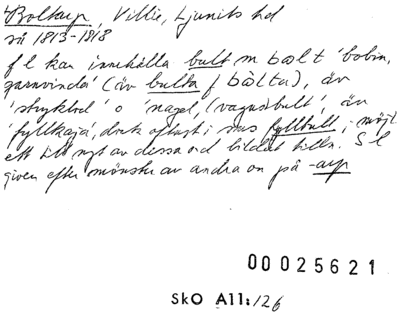 Boltarp, Villie, Ljunits hd
rå 1813-1818
f l kan innehålla bult m bɷlt 'bobin,
garnvinda' (äv bulta f bɷ̀lta), äv
'strykbol' o 'nagel, (vagns)bult', äv
'fyllkaja', dock oftast i sms fyllbult, möjl
ett till nyt av dessa ord bildat tilln. S l
given efter mönster av andra on på -arp
00025621
SkO All:126